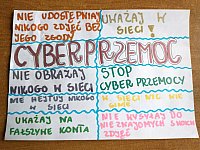 NIE UDOSTĘPNIAJ
NIKOGO ZDJĘĆ BEZ
JEGO ZGODY
UWAŻAJ W
SIECI !
CYBERPRZEMOC
NIE OBRAŻAJ
NIKOGO W SIECI
STOP
CYBER PRZEMOCY
NIE HEJTUJ NIKOGO
W SIECI
W SIECI NIC NIE
GINIE
UWAŻAJ NA
FAŁSZYWE KONTA
NIE WYSYŁAJ DO
NIEZNAJOMYCH SWOICH
ZDJĘĆ